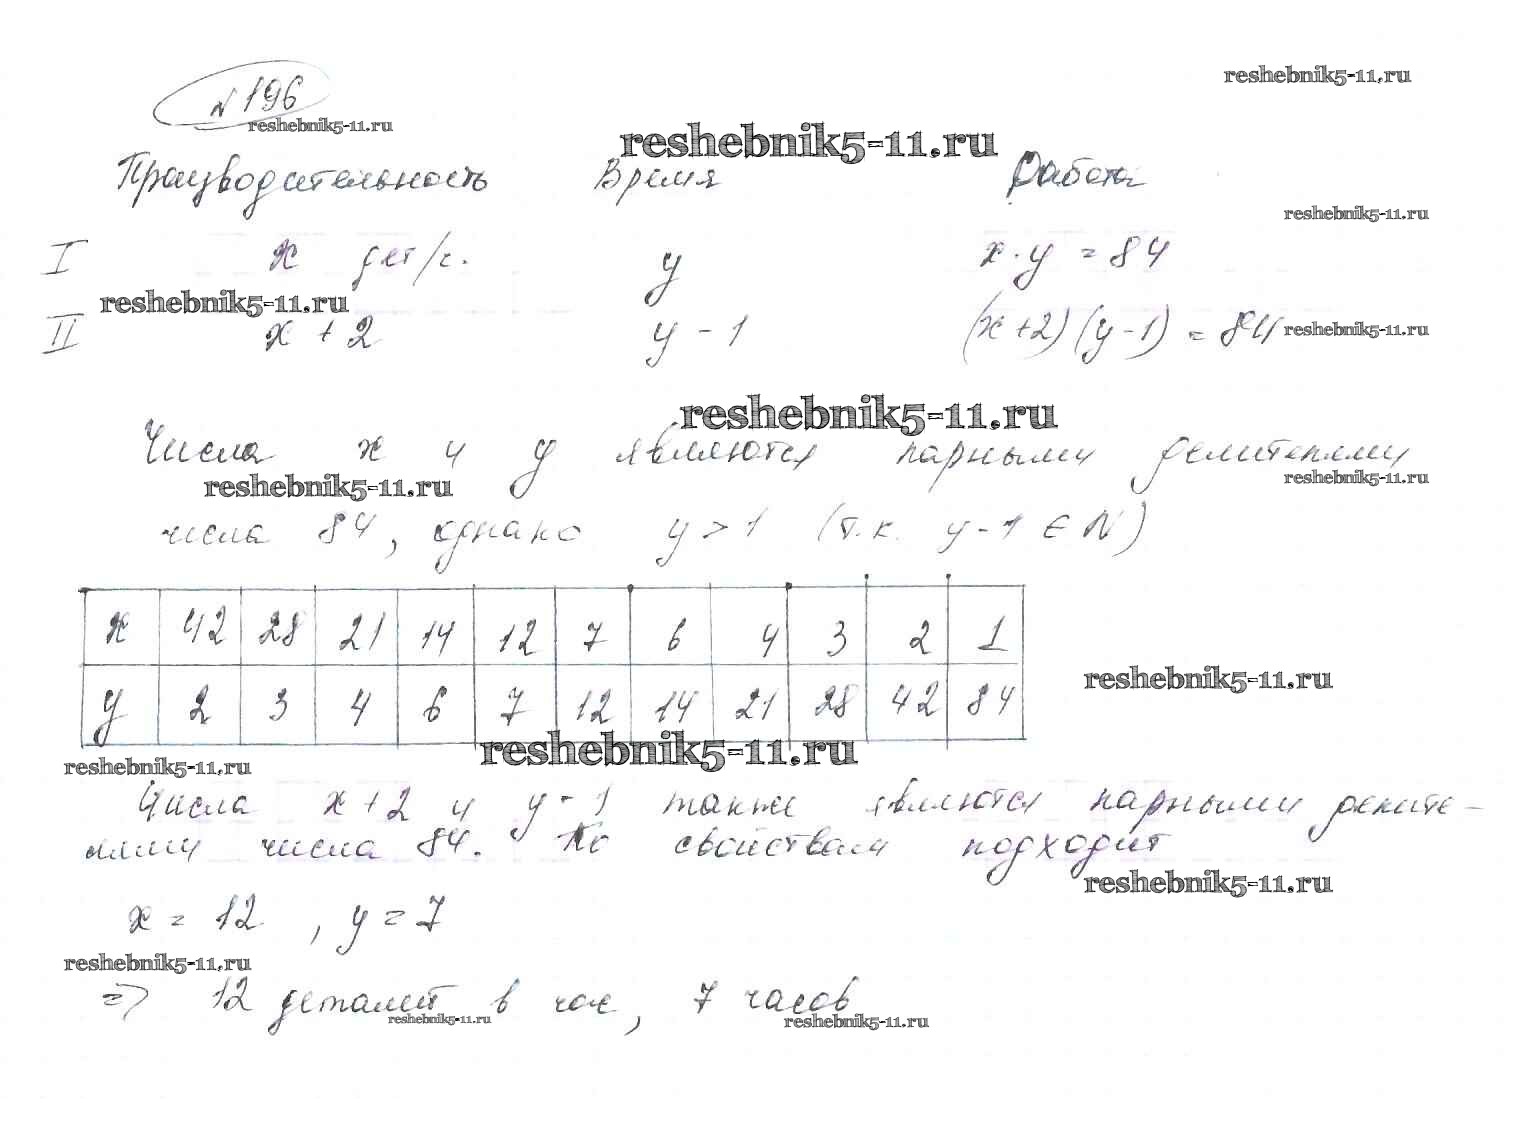 №196
reshebnik5-11.ru
reshebnik5-11.ru
reshebnik5-11.ru
Производительность Время Работа
reshebnik5-11.ru
I x дет/ч. y x·y = 84
reshebnik5-11.ru
II x + 2 y - 1 (x+2)(y-1) = 84
reshebnik5-11.ru
reshebnik5-11.ru
Числа x и y являются парными делителями
reshebnik5-11.ru
reshebnik5-11.ru
числа 84, однако y > 1 (т.к. y-1 ∈ N)
x 42 28 21 14 12 7 6 4 3 2 1
reshebnik5-11.ru
y 2 3 4 6 7 12 14 21 28 42 84
reshebnik5-11.ru
reshebnik5-11.ru
Числа x+2 и y-1 также являются парными делите-
лями числа 84. По свойствам подходит
reshebnik5-11.ru
x = 12, y = 7
reshebnik5-11.ru
=> 12 деталей в час, 7 часов
reshebnik5-11.ru
reshebnik5-11.ru